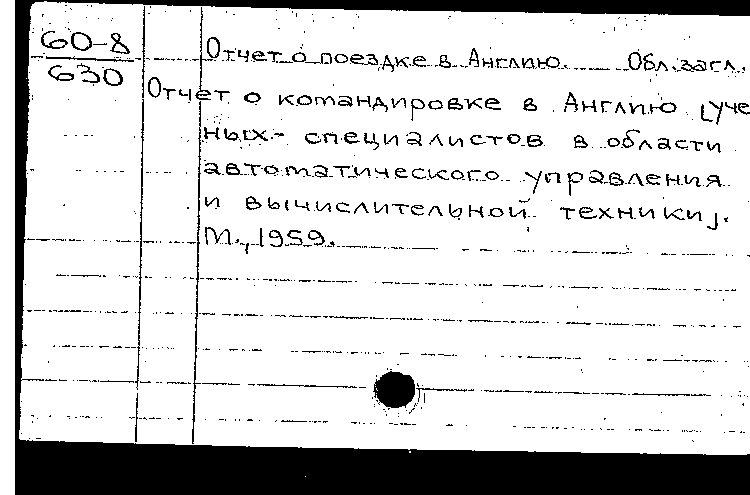 60-8
630
Отчет о поездке в Англию. Обл. загл.
Отчет о командировке в Англию [уче
ных-специалистов в области
автоматического управления
и вычислительной техники].
М., 1959.